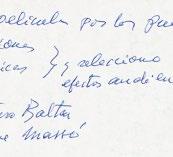 películas por los pue
iones
icas } y selecciono
efectos audio en
Baltar
e Massó